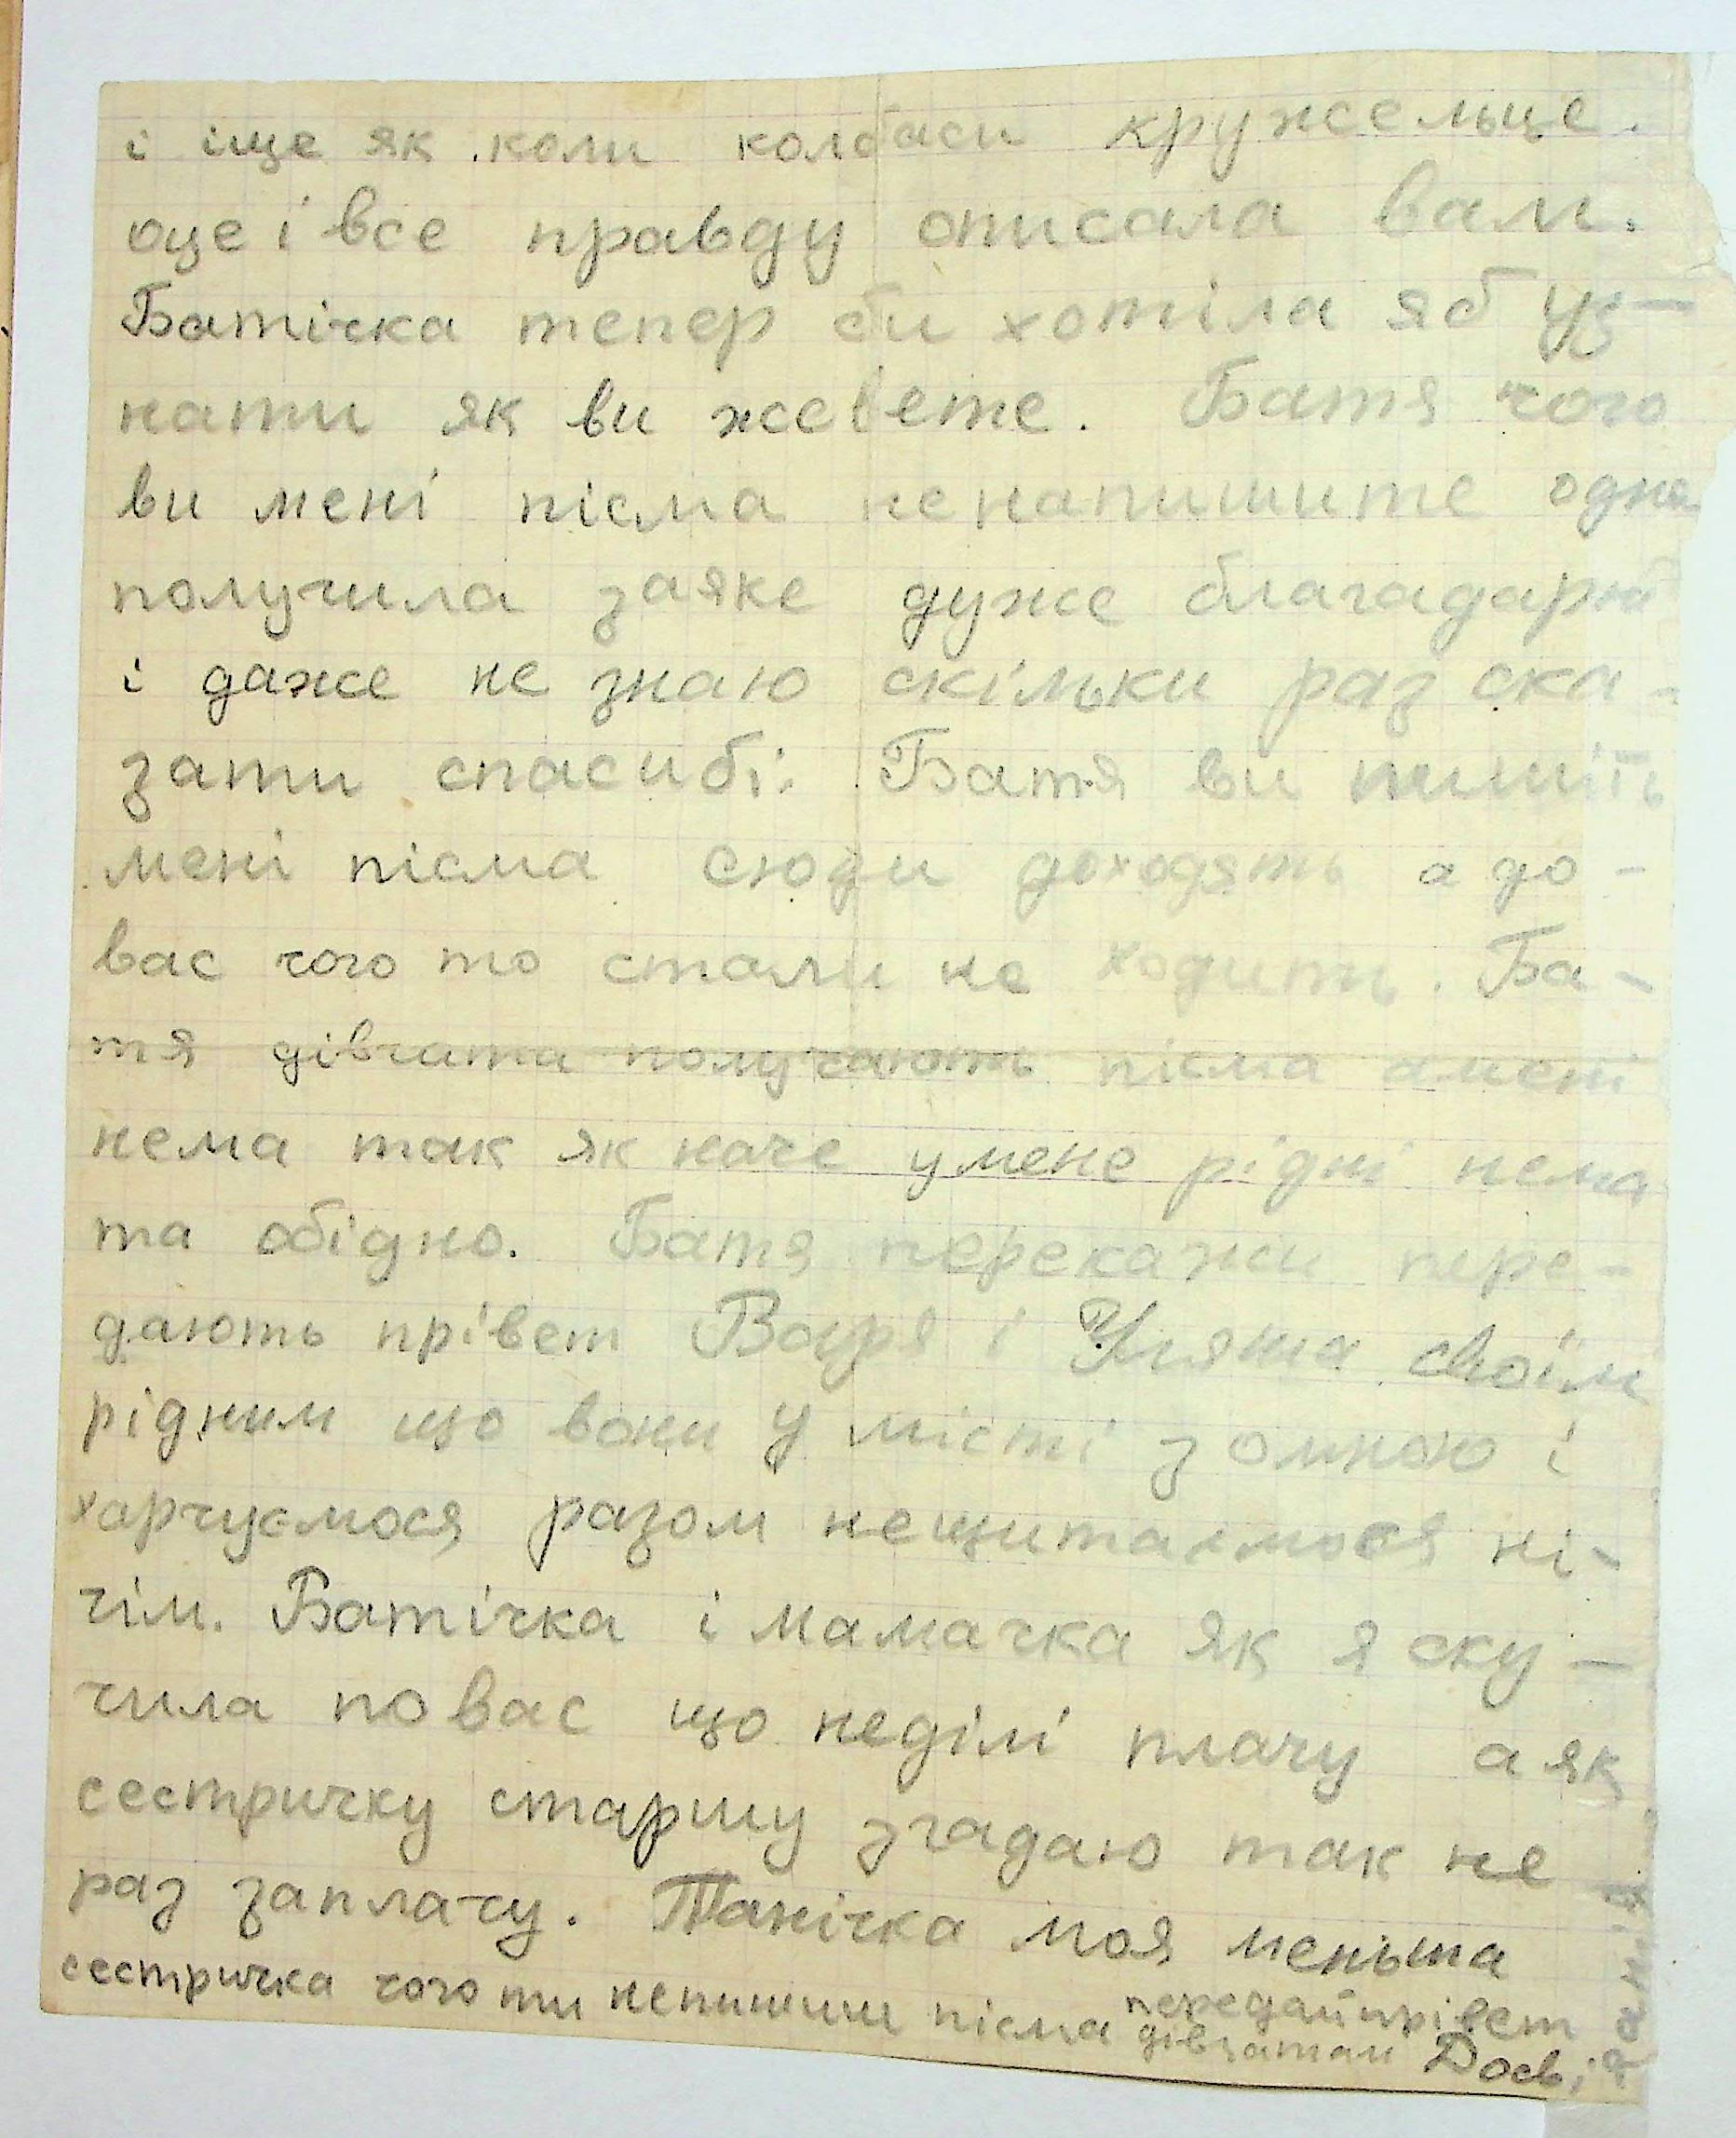 і іще як коли колбаси кружельце.
оце і все правду описала вам.
Батічка тепер би хотіла яб уз-
нати як ви жевете. Батя чого
ви мені пісма ненапишите одно
получила заяке дуже благадарна
і даже не знаю скільки раз ска-
зати спасибі. Батя ви пишіть
мені пісма сюди доходять а до-
вас чого то стали не ходить. Ба-
тя дівчата получають пісма амені
нема так як наче умене рідні нема
та обідно. Батя перекажи пере-
дають прівет Варя і Уляша своїм
рідним що вони у місті зомною і
харчуємося разом нещитаємося ні-
чім. Батічка і мамачка як я ску-
чила по вас що неділі плачу а як
сестричку старшу згадаю так не
раз заплачу. Танічка моя меньша
сестричка чого ти непишиш пісма передай прівет
дівчатам Досві
данія